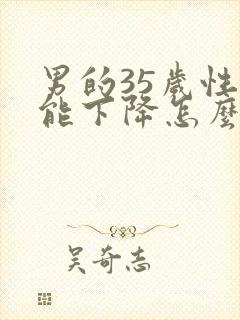 男的35歲性
能下降怎麼
吴奇志